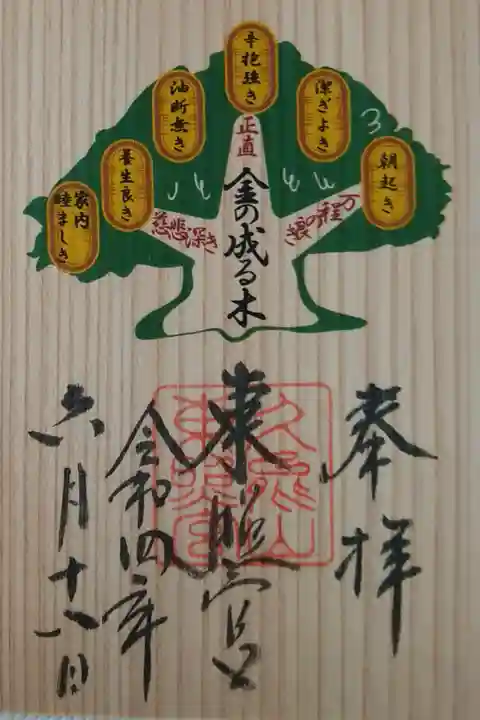 朝起き
潔ぎよき
辛抱強き
油断無き
養生良き
家内
睦ましき
正直
万程の良き
慈悲深き
金の成る木
奉拝
東照宮
久能山
東照宮
令和四年
六月十八日